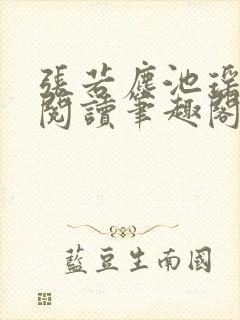 張若塵池瑤
閱讀筆趣閣
藍豆生南國